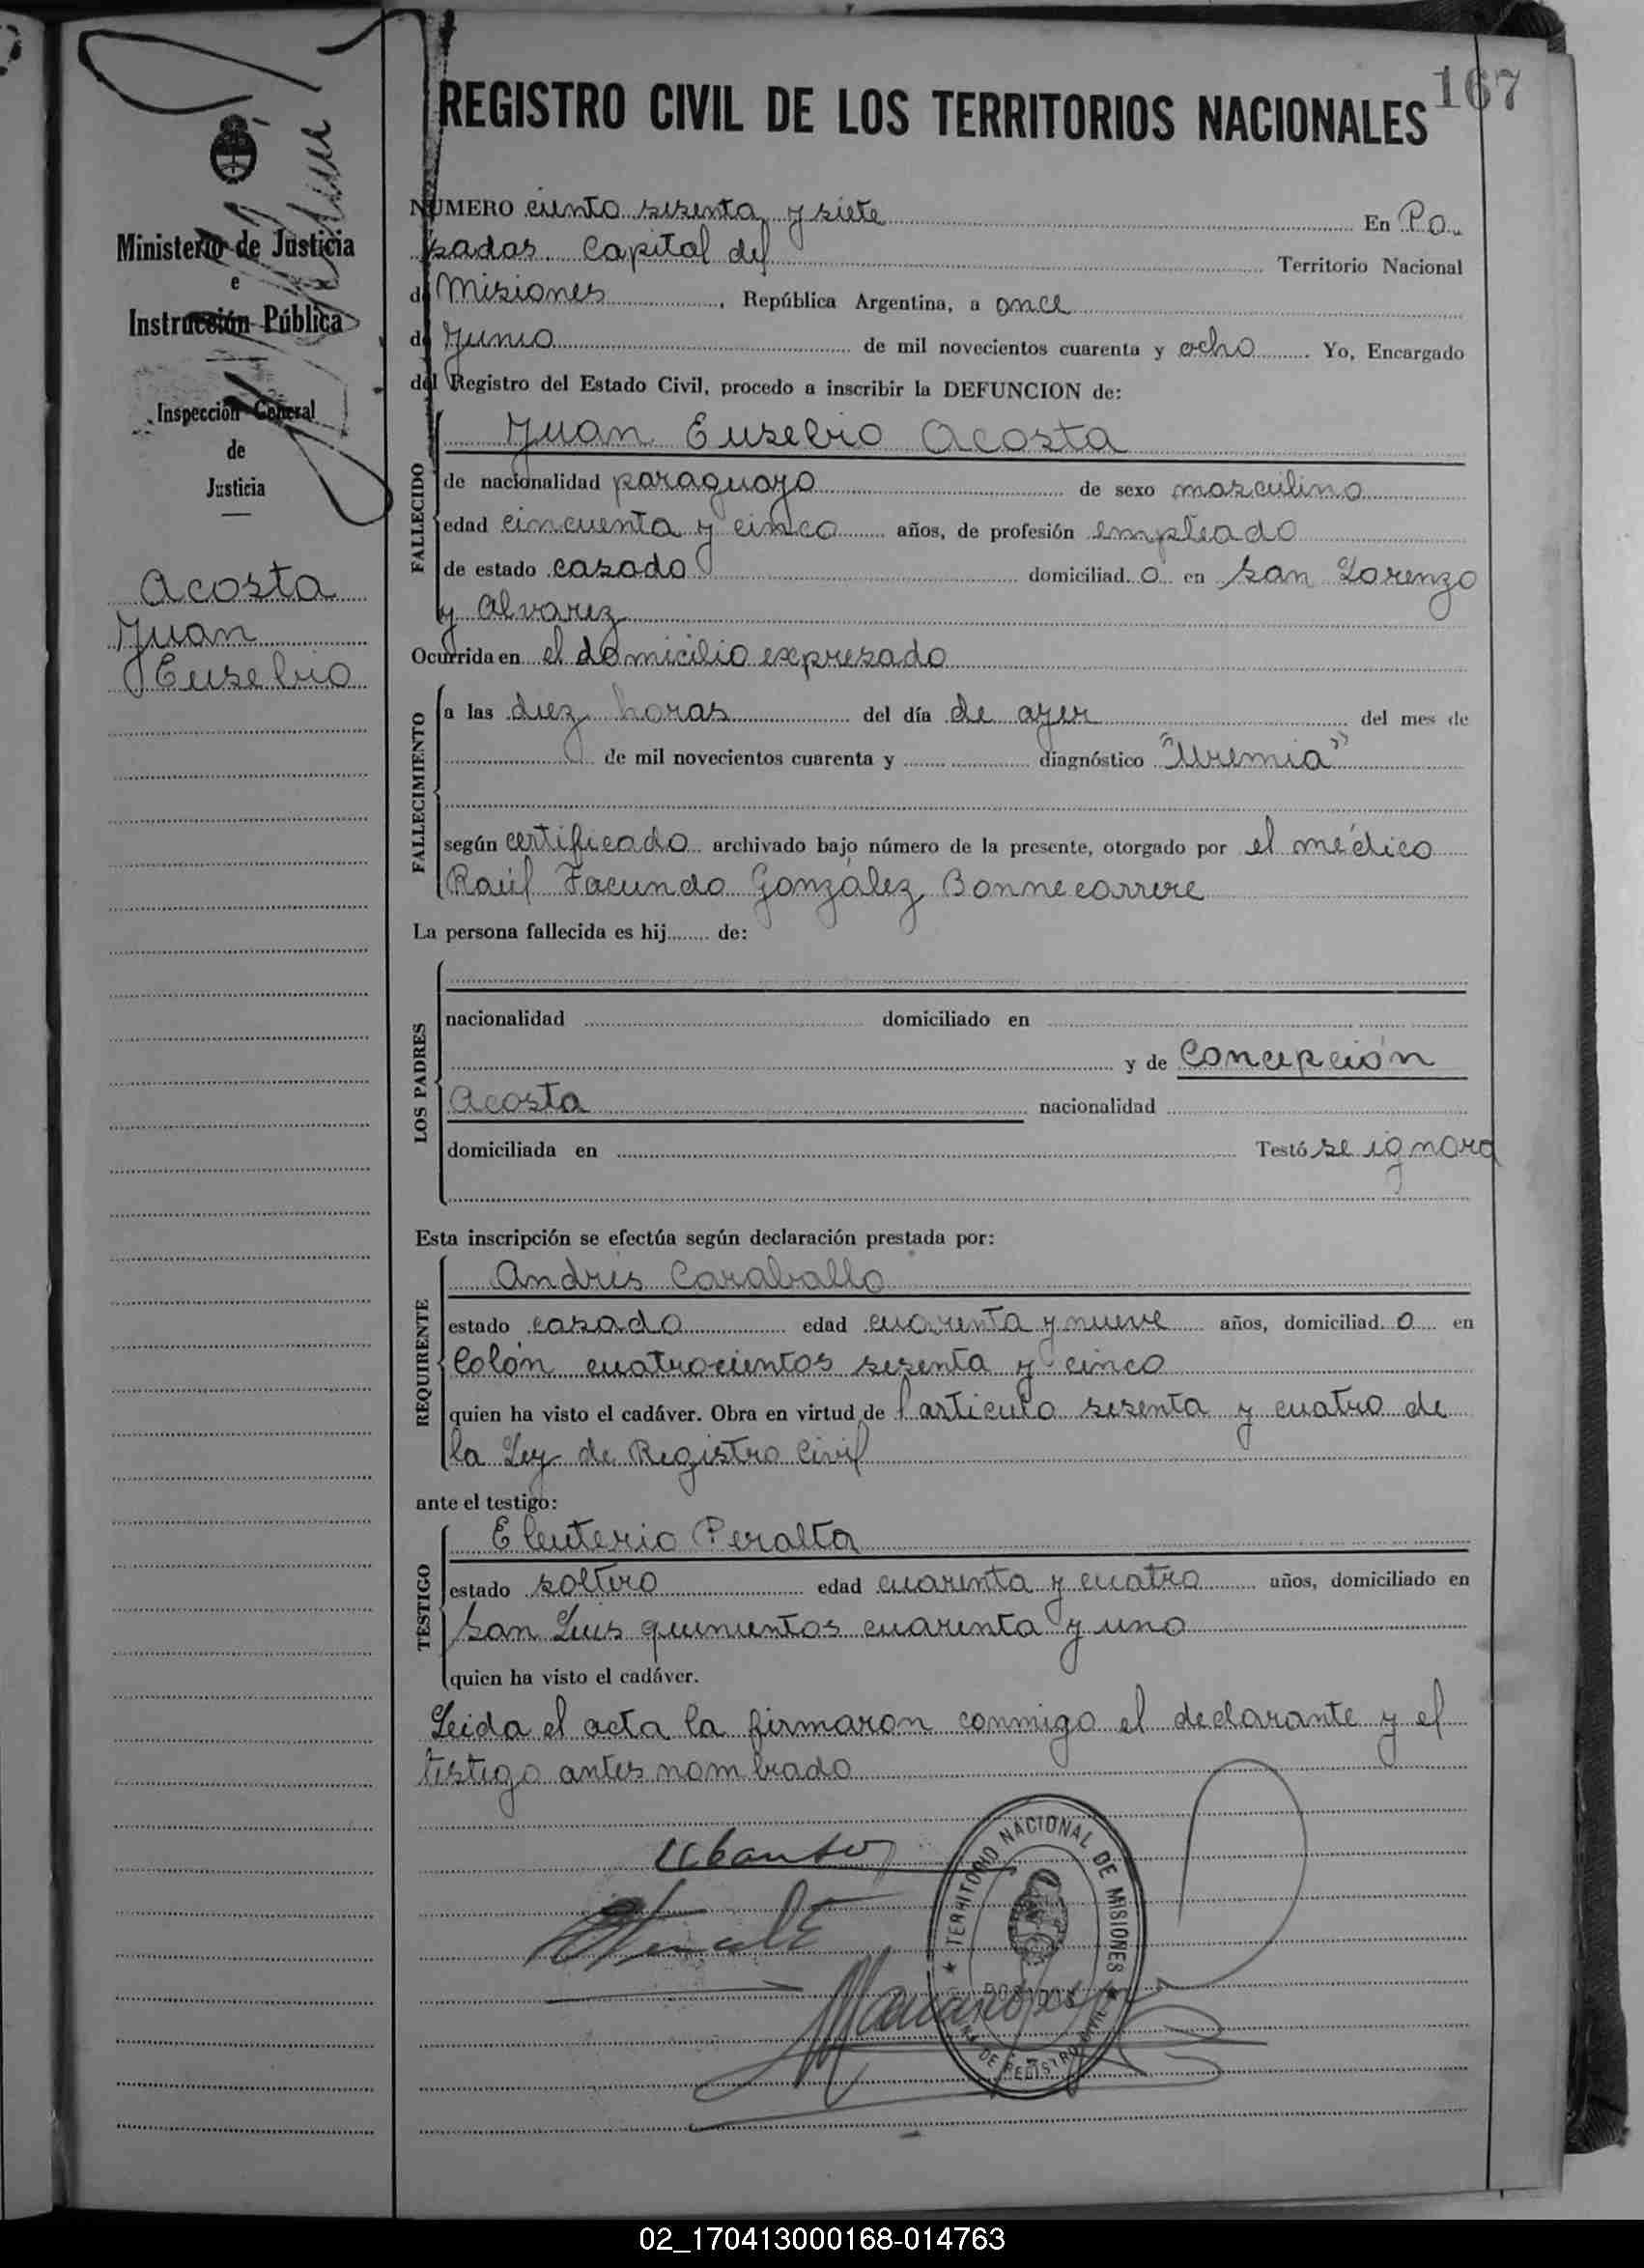 167
REGISTRO CIVIL DE LOS TERRITORIOS NACIONALES
Ministerio de Justicia
e
Instrucción Pública
Inspección General
de
Justicia
Acosta
Juan
Eusebio
NUMERO ciento sesenta y siete En Po-
sadas Capital del Territorio Nacional
de Misiones, República Argentina, a once
de Junio de mil novecientos cuarenta y ocho Yo, Encargado
del Registro del Estado Civil, procedo a inscribir la DEFUNCION de:
FALLECIDO
Juan Eusebio Acosta
de nacionalidad paraguayo de sexo masculino
edad cincuenta y cinco años, de profesión empleado
de estado casado domiciliad o en San Lorenzo
y Alvarez
Ocurrida en el domicilio expresado
FALLECIMIENTO
a las diez horas del día de ayer del mes de
de mil novecientos cuarenta y diagnóstico "Uremia"
según certificado archivado bajo número de la presente, otorgado por el médico
Raúl Facundo González Bonnecarrere
La persona fallecida es hij........ de:
LOS PADRES
nacionalidad domiciliado en
y de Concepción
Acosta nacionalidad
domiciliada en Testó se ignora
Esta inscripción se efectúa según declaración prestada por:
REQUIRENTE
Andrés Caraballo
estado casado edad cuarenta y nueve años, domiciliad o en
Colón cuatrocientos sesenta y cinco
quien ha visto el cadáver. Obra en virtud de l artículo sesenta y cuatro de
la Ley de Registro Civil
ante el testigo:
TESTIGO
Eleuterio Peralta
estado soltero edad cuarenta y cuatro años, domiciliado en
San Luis quinientos cuarenta y uno
quien ha visto el cadáver.
Leida el acta la firmaron conmigo el declarante y el
testigo antes nombrado
TERRITORIO NACIONAL DE MISIONES
POSADAS
DE REGISTRO CIVIL
02_170413000168-014763